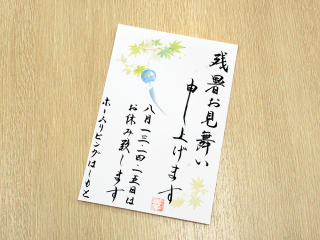 残暑お見舞い
申し上げます
八月一三・一四・一五日は
お休み致します
ホームリビングはしもと